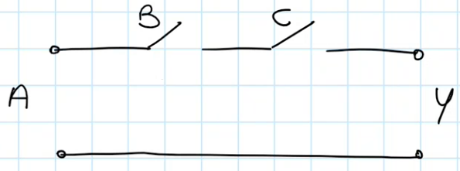 B C
A Y